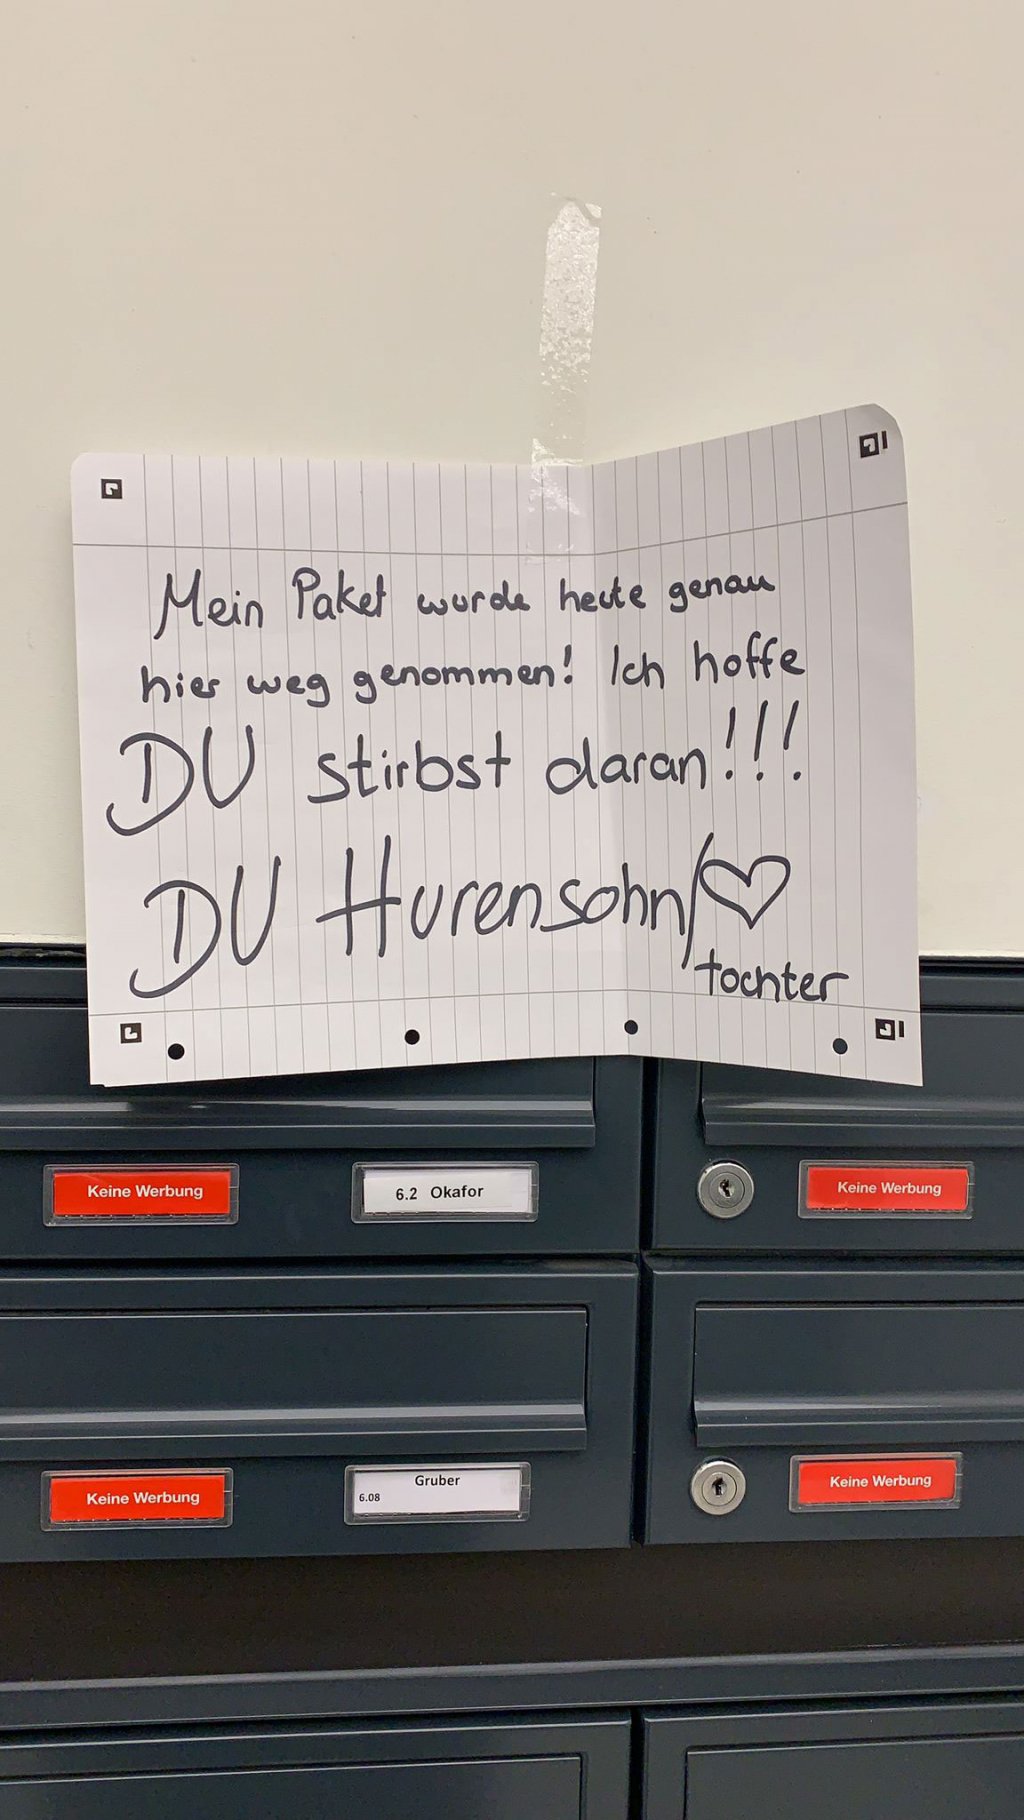 Mein Paket wurde heute genau
hier weg genommen! Ich hoffe
DU stirbst daran!!!
DU Hurensohn/♡
tochter
Keine Werbung
6.2 Okafor
Keine Werbung
Keine Werbung
Gruber
6.08
Keine Werbung